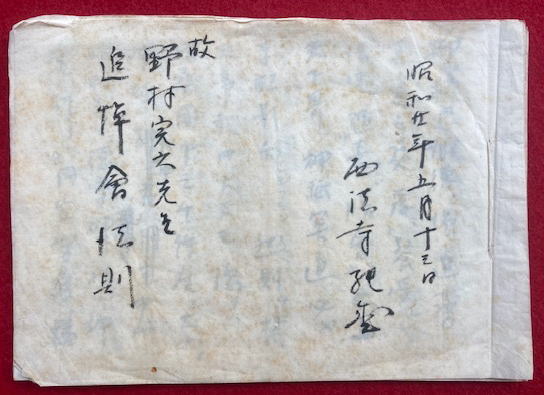 昭和廿年五月十三日
西法寺
故
野村完六先生
追悼會法則